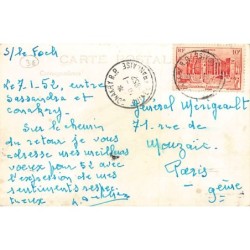 S/le Foch
CARTE POSTALE
Le 7.1.52, entre
Sassandra et
Conakry.
Sur le chemin
du retour je vous
adresse mes meilleurs
voeux pour 52 avec
l'expression de mes
sentiments respec-
tueux.
Général Mérigeault
71 - rue de
Mouzaïa.
Paris -
10F